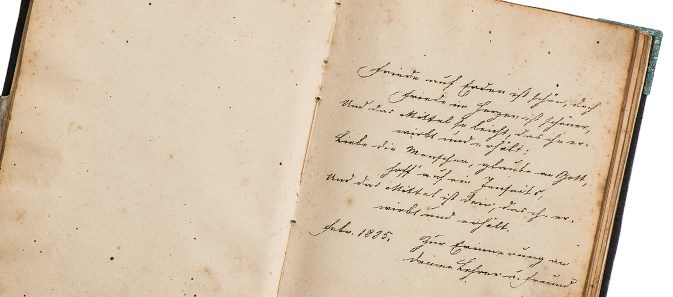 Friede auf Erden ist schön, doch
Friede im Herzen ist schöner,
Und das Mittel so leicht, das ihn er-
wirbt und erhält:
Liebe die Menschen, glaube an Gott,
hoff' auf ein Jenseits,
Und das Mittel ist dein, das ihn er-
wirbt und erhält.
Febr. 1885.
Zur Erinnerung an
deinen Lehrer u. Freund